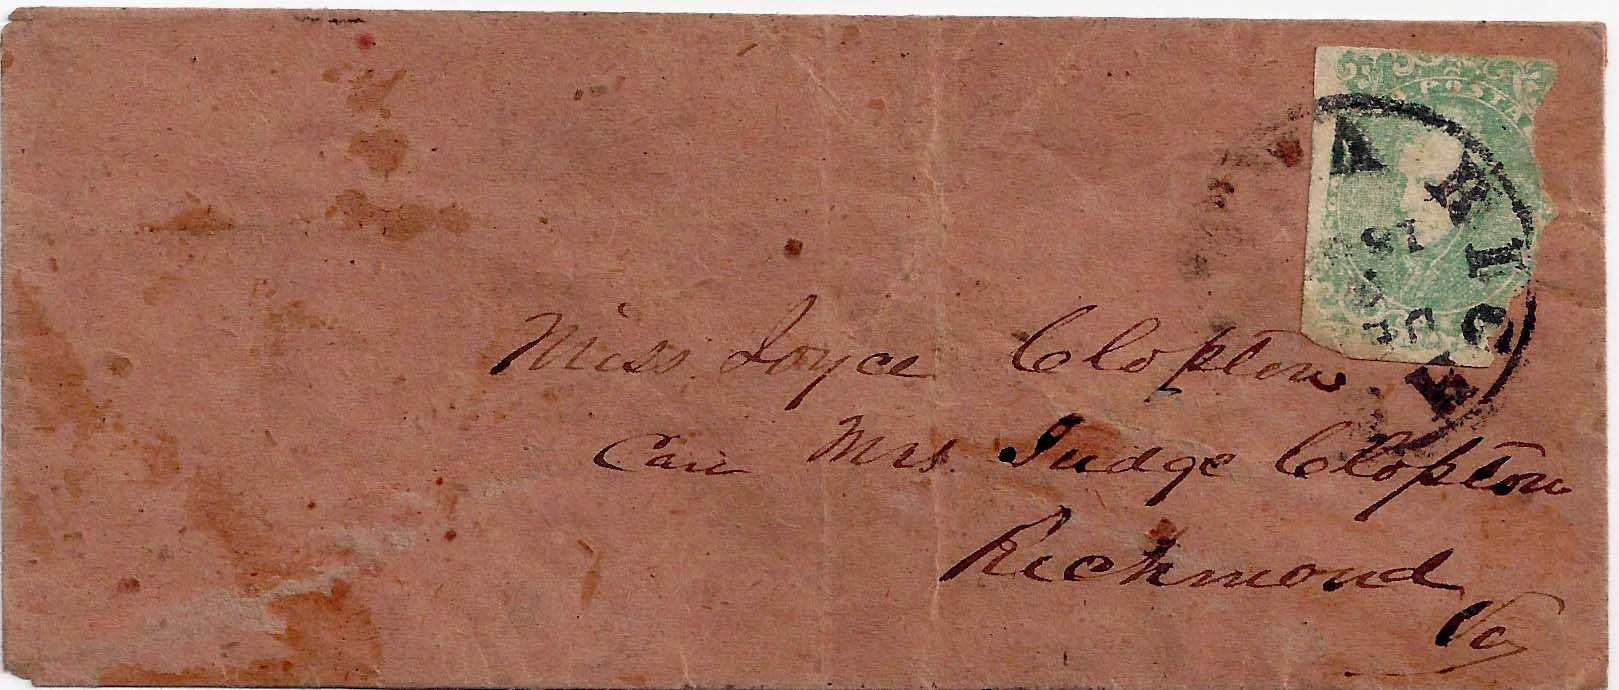 POST
RICH
Miss Joyce Clopton
Care Mrs Judge Clopton
Richmond
Va